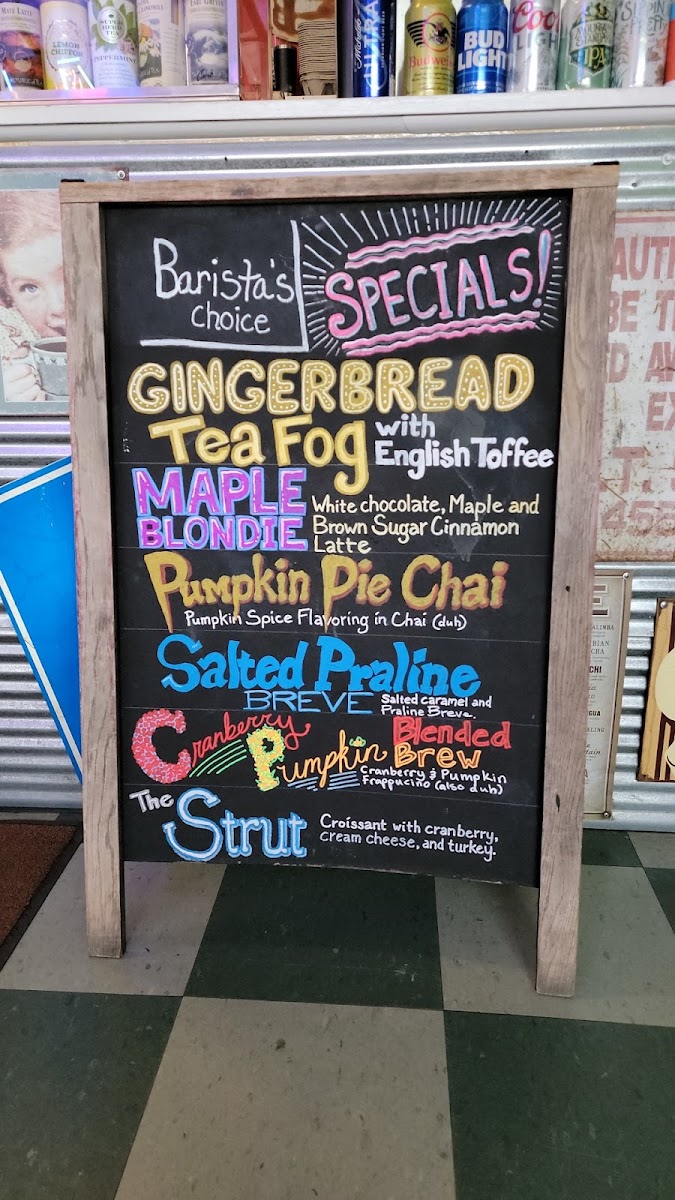 LEMON
CHIFFON
SUPER
HERB
TEA
PEPPERMINT
EARL GREY
Michelob
ULTRA
Budweiser
BUD
LIGHT
Coors
LIGHT
IPA
Barista's
choice
SPECIALS!
GINGERBREAD
Tea Fog with
English Toffee
MAPLE
BLONDIE
White chocolate, Maple and
Brown Sugar Cinnamon
Latte
Pumpkin Pie Chai
Pumpkin Spice Flavoring in Chai (duh)
Salted Praline
BREVE
Salted caramel and
Praline Breve.
Cranberry
Pumpkin
Blended
Brew
Cranberry & Pumpkin
Frappucino (also duh)
The
Strut
Croissant with cranberry,
cream cheese, and turkey.